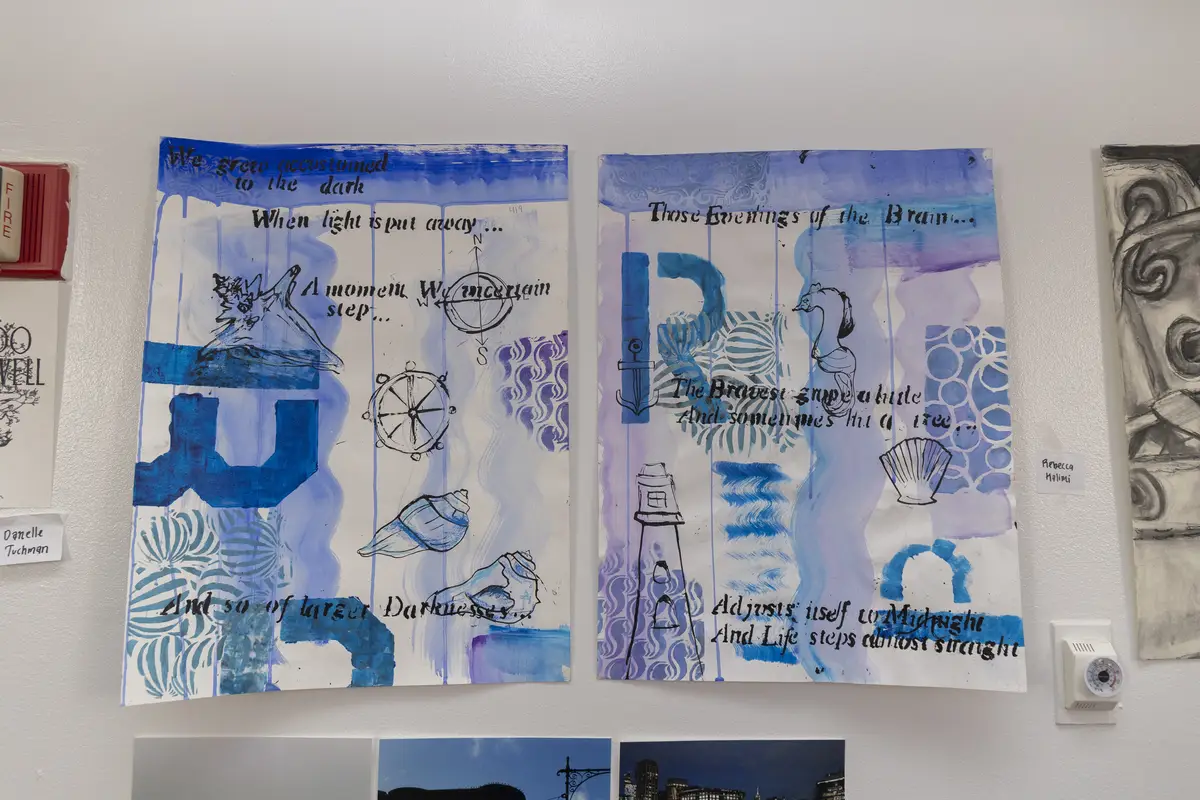 FIRE
WELL
Danelle
Tuchman
We grew accustomed
to the dark
When light is put away...
N
A moment We uncertain
step...
S
And so of larger Darknesses...
Those Evenings of the Brain...
The Bravest grope a little
And sometimes hit a tree...
Adjusts itself to Midnight
And Life steps almost straight
Rebecca
Halimi